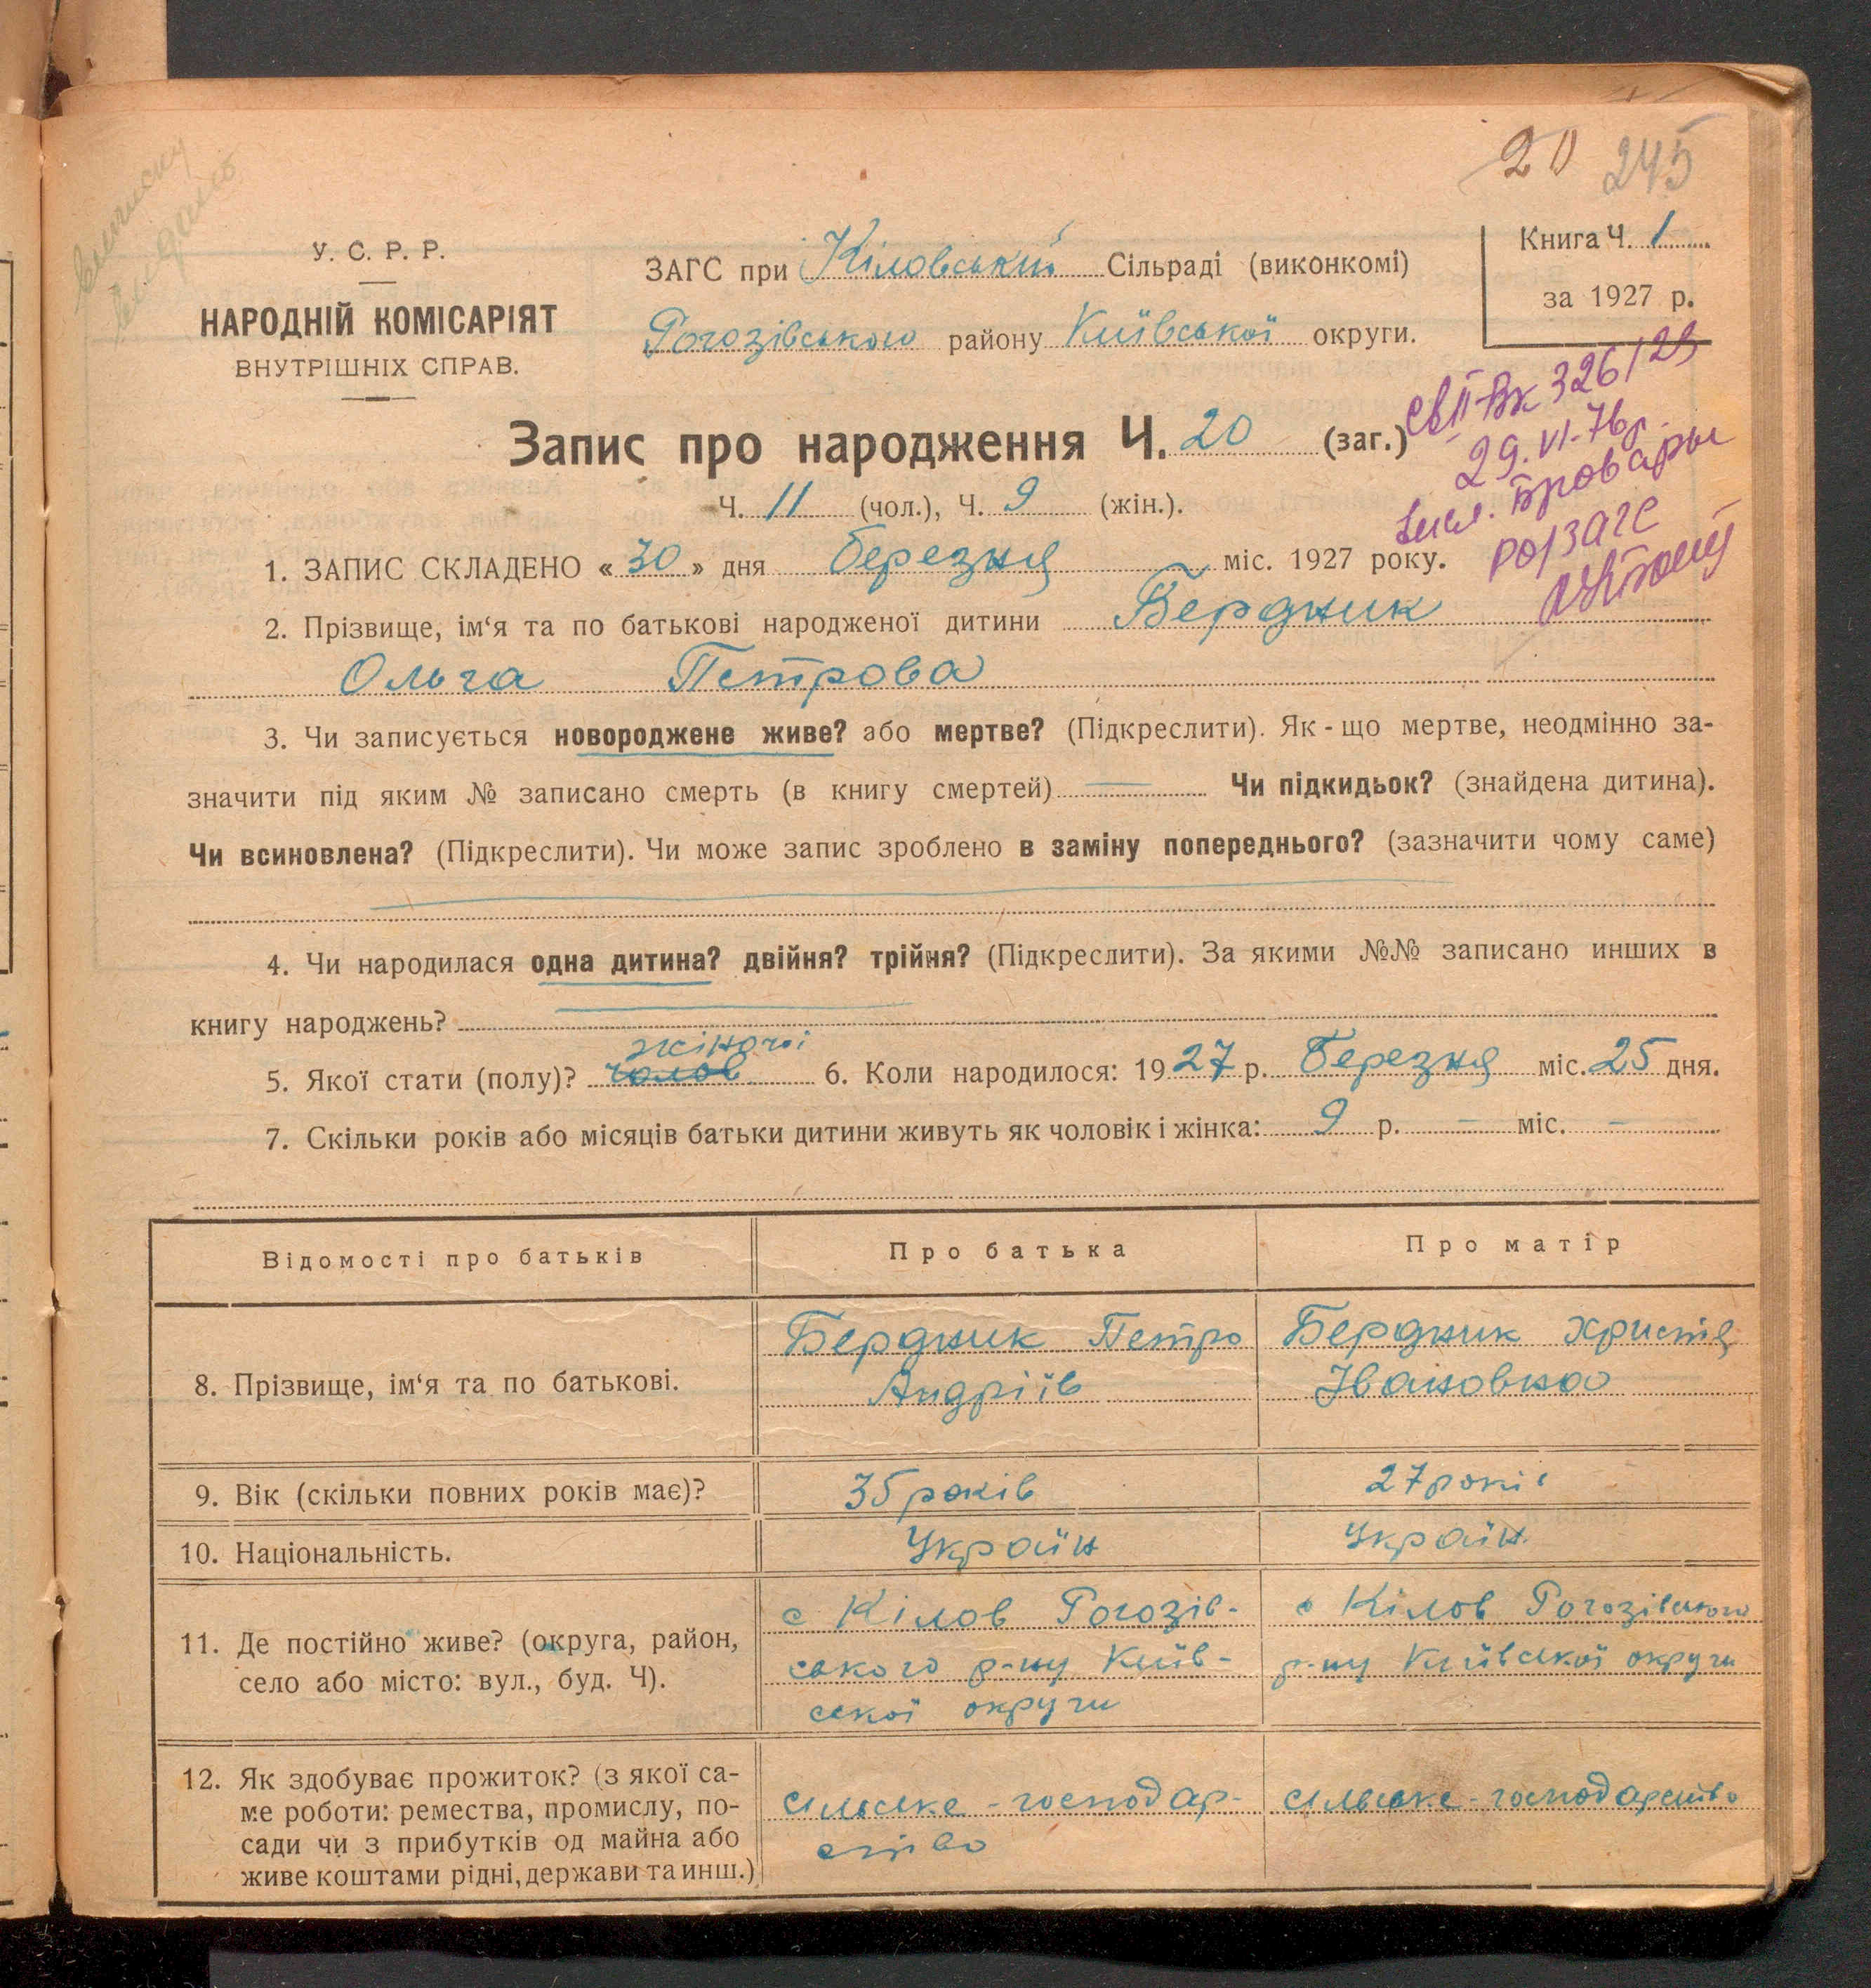 20 245
У. С. Р. Р.
НАРОДНІЙ КОМІСАРІЯТ
ВНУТРІШНІХ СПРАВ.
ЗАГС при Кіловській Сільраді (виконкомі)
Рогозівського району Київської округи.
Книга Ч. 1
за 1927 р.
Запис про народження Ч. 20 (заг.)
Ч. 11 (чол.), Ч. 9 (жін.).
326/23
29.VI-76р.
Бровары
1. ЗАПИС СКЛАДЕНО «30» дня березня міс. 1927 року.
2. Прізвище, ім‘я та по батькові народженої дитини Берджик
Ольга Петрова
3. Чи записується новороджене живе? або мертве? (Підкреслити). Як-що мертве, неодмінно за-
значити під яким № записано смерть (в книгу смертей) — Чи підкидьок? (знайдена дитина).
Чи всиновлена? (Підкреслити). Чи може запис зроблено в заміну попереднього? (зазначити чому саме)
4. Чи народилася одна дитина? двійня? трійня? (Підкреслити). За якими №№ записано инших в
книгу народжень?
жіночоі
5. Якої стати (полу)? чолов 6. Коли народилося: 1927 р. Березня міс. 25 дня.
7. Скільки років або місяців батьки дитини живуть як чоловік і жінка: 9 р. — міс. —
Відомості про батьків Про батька Про матір
8. Прізвище, ім‘я та по батькові.
Берджик Петро
Андріїв
Берджик Христя
Івановна
9. Вік (скільки повних років має)? 35 років 27 років
10. Національність. Україн Україн.
11. Де постійно живе? (округа, район,
село або місто: вул., буд. Ч).
с Кілов Рогозів-
ського р-ну Київ-
ської округи
с Кілов Рогозівського
р-ну Київської округи
12. Як здобуває прожиток? (з якої са-
ме роботи: ремества, промислу, по-
сади чи з прибутків од майна або
живе коштами рідні, держави та инш.)
сільське-господар-
ство
сільське-господарство